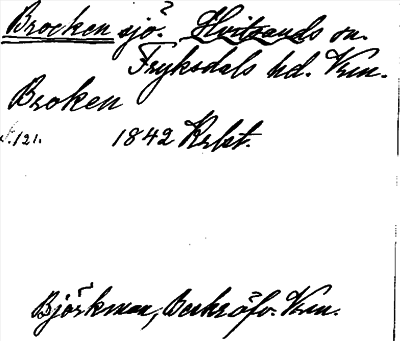 Brocken sjö? Hvitsands sn.
Fryksdals hd. Vrm.
Broken
s. 121. 1842 Krbt.
Björkman, Berksöfv. Vrm.